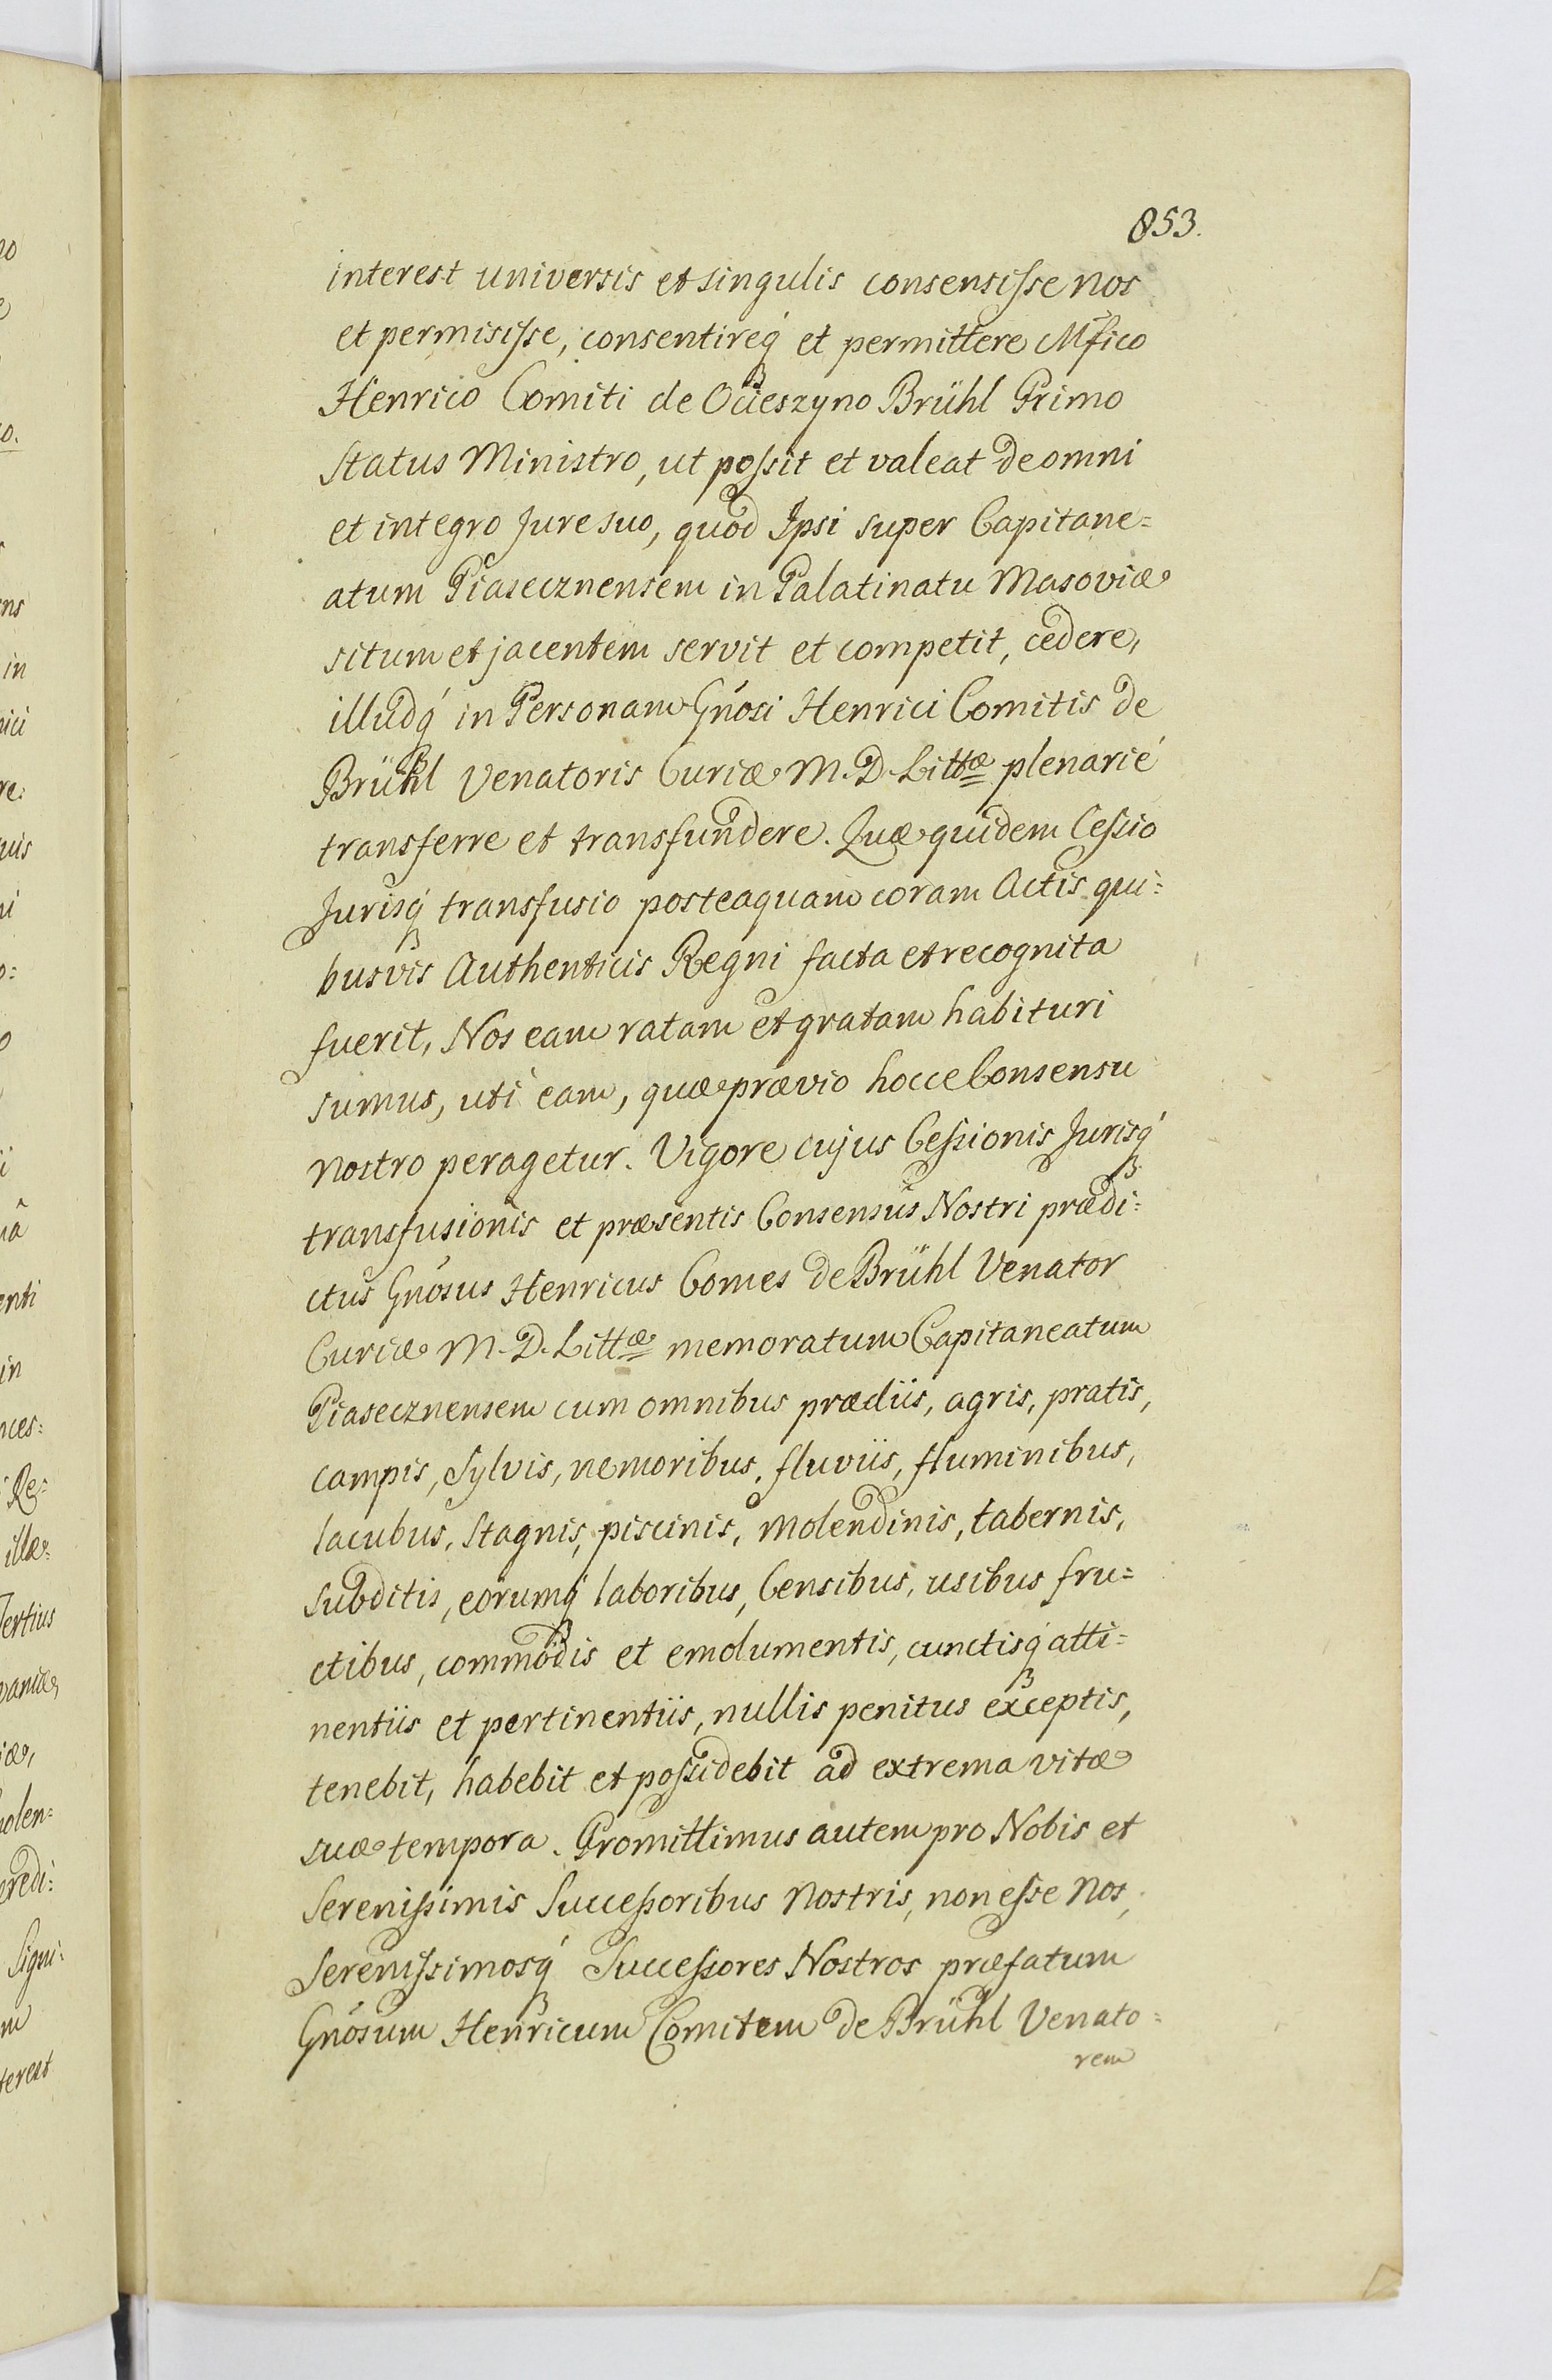 853.
interest universis et singulis consensisse nos
et permisisse, consentireq́ et permittere Mfico
Henrico Comiti de Ocieszyno Brühl Primo
Status Ministro, ut possit et valeat de omni
et integro Jure suo, quod Ipsi super Capitane=
atum Piasecznensem in Palatinatu Masoviæ
situm et jacentem servit et competit, cedere,
illudq́ in Personam Gnósi Henrici Comitis de
Brühl Venatoris Curiæ M. D. Littæ plenarié
transferre et transfundere. Quæ quidem Cessio
Jurisq́ transfusio posteaquam coram Actis qui=
busvis Authenticis Regni facta et recognita
fuerit, Nos eam ratam et gratam habituri
sumus, uti eam, quæ prævio hocce Consensu
nostro peragetur. Vigore cujus Cessionis Jurisq́
transfusionis et præsentis Consensus Nostri prædi=
ctus Gnósus Henricus Comes de Brühl Venator
Curiæ M. D. Littæ memoratum Capitaneatum
Piasecznensem cum omnibus prædiis, agris, pratis,
campis, Sylvis, nemoribus, fluviis, fluminibus,
lacubus, Stagnis, piscinis, molendinis, tabernis,
subditis, eorumq́ laboribus, Censibus, usibus fru=
ctibus, commodis et emolumentis, cunctisq́ atti=
nentiis et pertinentiis, nullis penitus exceptis,
tenebit, habebit et possidebit ad extrema vitæ
suæ tempora. Promittimus autem pro Nobis et
Serenissimis Successoribus Nostris, non esse Nos,
Serenissimosq́ Successores Nostros præfatum
Gnósum Henricum Comitem de Brühl Venato=
rem